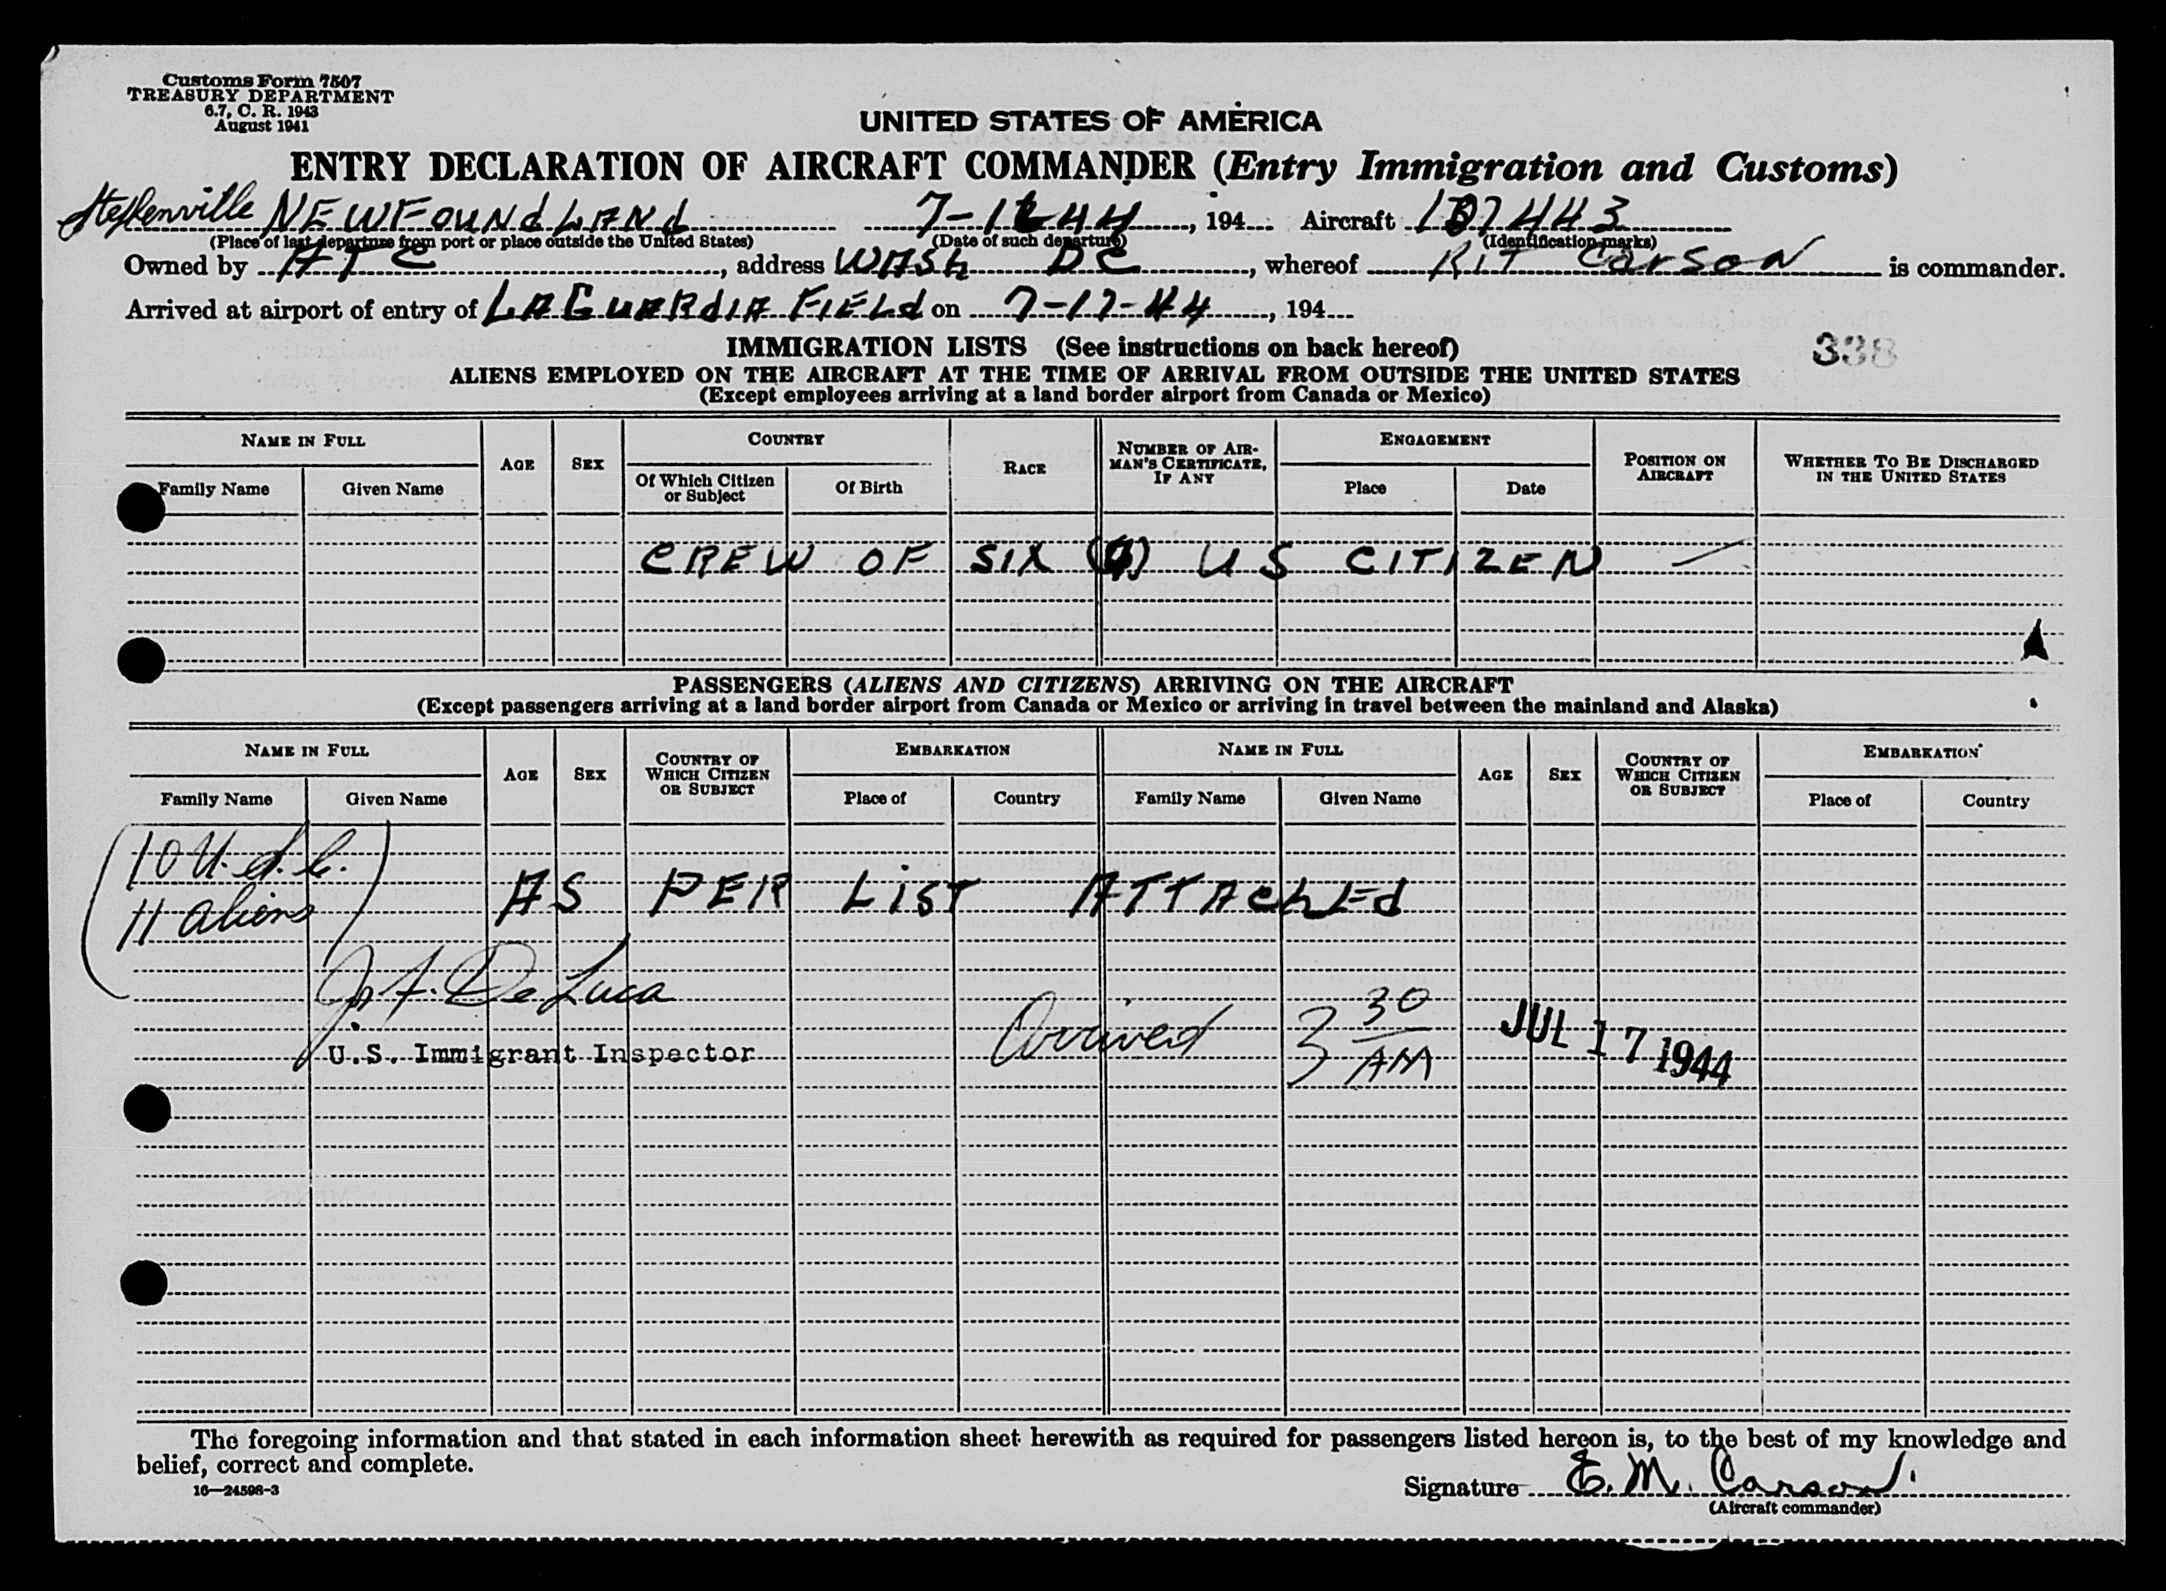 Customs Form 7507
TREASURY DEPARTMENT
6.7, C. R. 1943
August 1941
UNITED STATES OF AMERICA
ENTRY DECLARATION OF AIRCRAFT COMMANDER (Entry Immigration and Customs)
Stephenville NEWFOUNdLANd 7-16-44, 194 Aircraft 107443
(Place of last departure from port or place outside the United States) (Date of such departure) (Identification marks)
Owned by ATC, address WASh DC, whereof KIT CARSON is commander.
Arrived at airport of entry of LAGUARdIA FIELd on 7-17-44, 194
IMMIGRATION LISTS (See instructions on back hereof) 338
ALIENS EMPLOYED ON THE AIRCRAFT AT THE TIME OF ARRIVAL FROM OUTSIDE THE UNITED STATES
(Except employees arriving at a land border airport from Canada or Mexico)
NAME IN FULL AGE SEX COUNTRY RACE NUMBER OF AIRMAN'S CERTIFICATE, IF ANY ENGAGEMENT POSITION ON AIRCRAFT WHETHER TO BE DISCHARGED IN THE UNITED STATES
Family Name Given Name Of Which Citizen or Subject Of Birth Place Date
CREW OF SIX (6) US CITIZEN —
PASSENGERS (ALIENS AND CITIZENS) ARRIVING ON THE AIRCRAFT
(Except passengers arriving at a land border airport from Canada or Mexico or arriving in travel between the mainland and Alaska)
NAME IN FULL AGE SEX COUNTRY OF WHICH CITIZEN OR SUBJECT EMBARKATION NAME IN FULL AGE SEX COUNTRY OF WHICH CITIZEN OR SUBJECT EMBARKATION
Family Name Given Name Place of Country Family Name Given Name Place of Country
(10 U.S.C.
11 aliens)
AS PER LIST ATTAChEd
J. A. De Luca
U.S. Immigrant Inspector
Arrived 3 30 AM JUL 17 1944
The foregoing information and that stated in each information sheet herewith as required for passengers listed hereon is, to the best of my knowledge and
belief, correct and complete.
16—24598-3
Signature E. M. Carson
(Aircraft commander)